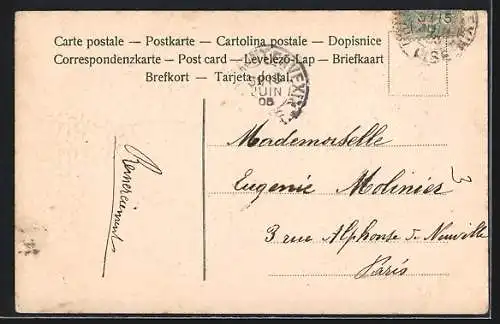 Carte postale — Postkarte — Cartolina postale — Dopisnice
Correspondenzkarte — Post card — Levelező-Lap — Briefkaart
Brefkort — Tarjeta postal.
JUIN
05
Remerciements
Mademoiselle
Eugenie Molinier
3
3 rue Alphonse d. Neuville
Paris